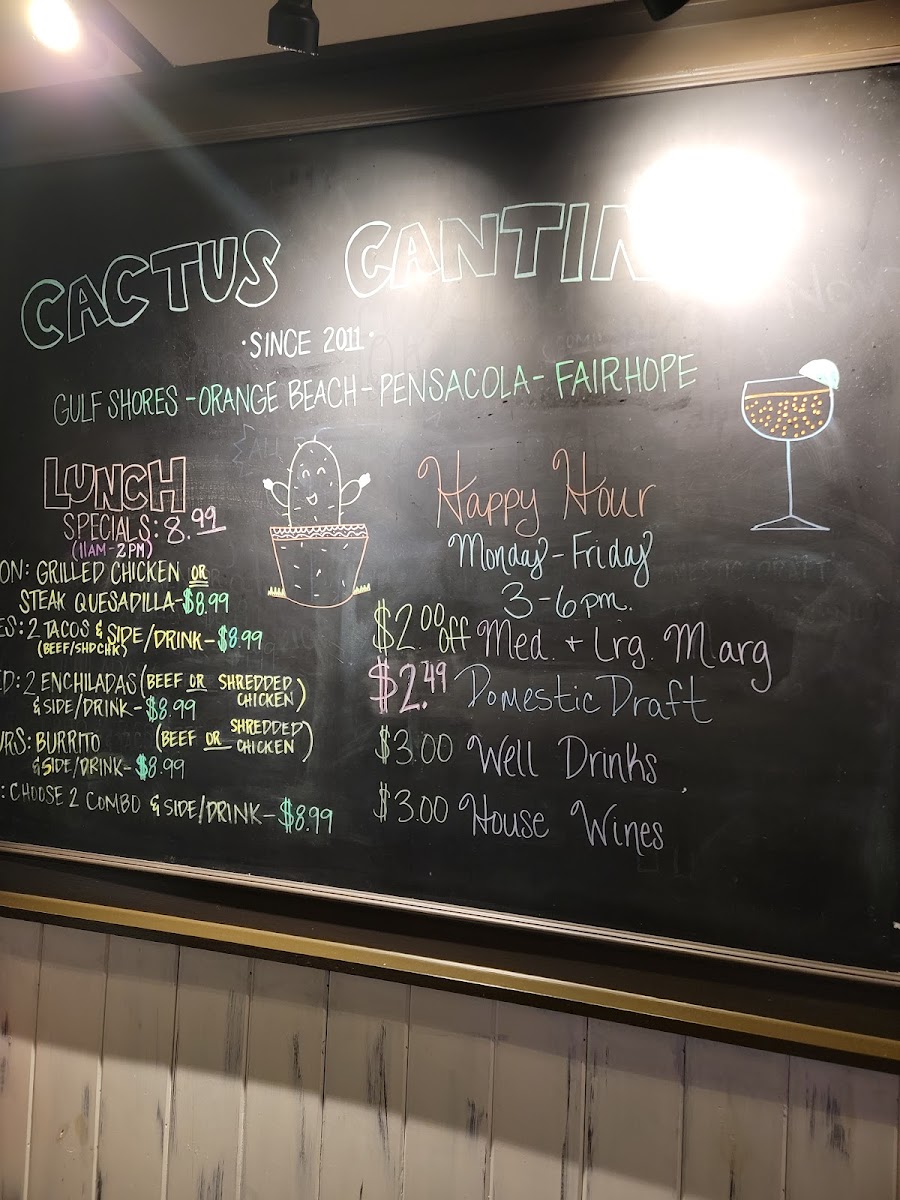 CACTUS CANTIN
·SINCE 2011·
GULF SHORES - ORANGE BEACH - PENSACOLA - FAIRHOPE
LUNCH
SPECIALS: 8.99
(11AM-2PM)
ON: GRILLED CHICKEN OR
STEAK QUESADILLA-$8.99
ES: 2 TACOS & SIDE/DRINK-$8.99
(BEEF/SHD CHK)
ED: 2 ENCHILADAS (BEEF OR SHREDDED CHICKEN)
& SIDE/DRINK-$8.99
URS: BURRITO (BEEF OR SHREDDED CHICKEN)
& SIDE/DRINK-$8.99
: CHOOSE 2 COMBO & SIDE/DRINK-$8.99
Happy Hour
Monday-Friday
3-6pm.
$2.00 off Med. + Lrg. Marg
$2.49 Domestic Draft
$3.00 Well Drinks
$3.00 House Wines